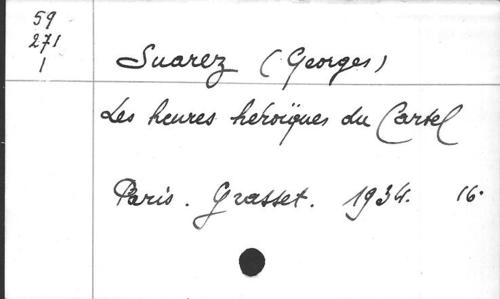 59
271
1
Suarez (Georges)
Les heures héroïques du Cartel
Paris. Grasset. 1934. 16°